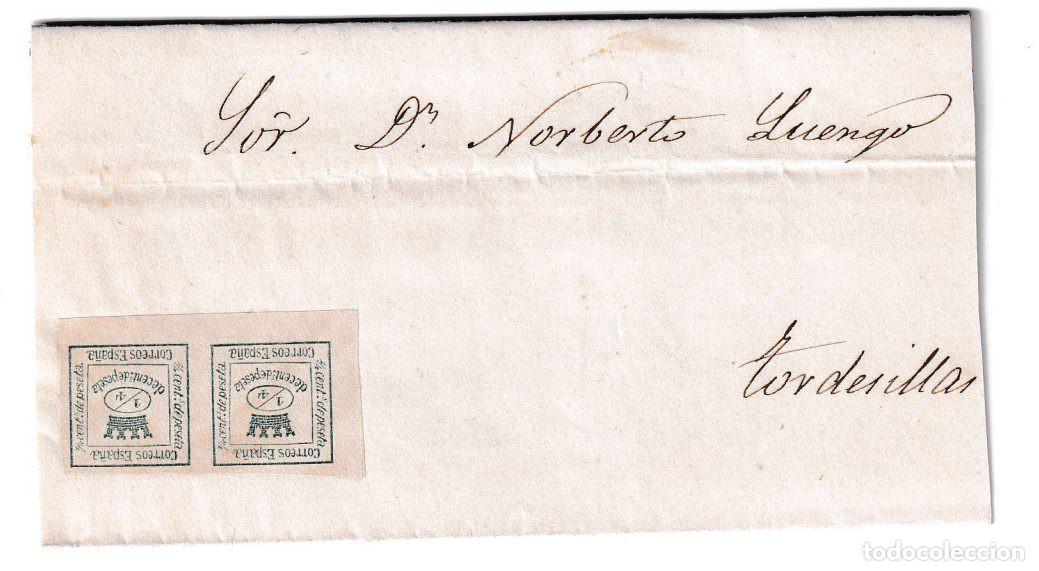 Sor̃. Dⁿ. Norberto Luengo
Tordesillas
Correos España.
¼ cent: de peseta.
de cent: de peseta
1/4
¼ cent: de peseta
Correos España.
Correos España.
¼ cent: de peseta.
de cent: de peseta
1/4
¼ cent: de peseta
Correos España.
todocoleccion